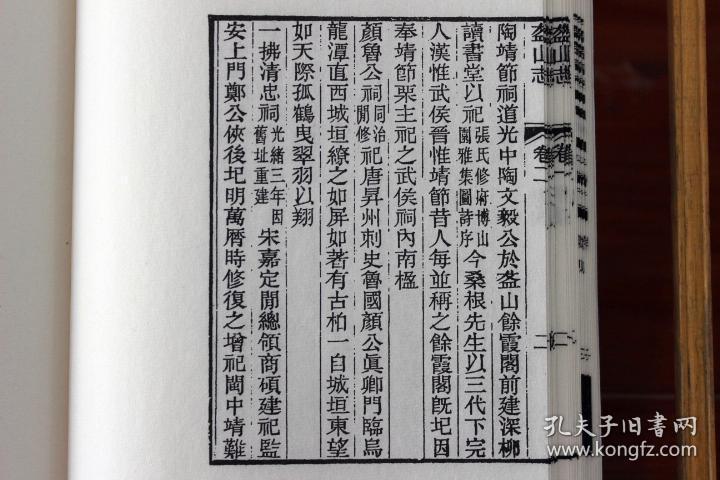 陶靖節祠道光中陶文毅公於盋山餘霞閣前建深柳
讀書堂以祀張氏修府博山園雅集圖詩序今桑根先生以三代下完
人漢惟武侯晉惟靖節昔人每並稱之餘霞閣旣圮因
奉靖節栗主祀之武侯祠內南楹
顏魯公祠同治閒修祀唐昇州刺史魯國顏公眞卿門臨烏
龍潭直西城垣繚之如屏如著有古柏一自城垣東望
如天際孤鶴曳翠羽以翔
一拂清忠祠光緒三年因舊址重建宋嘉定閒總領商碩建祀監
安上門鄭公俠後圮明萬曆時修復之增祀閩中靖難
盋山志
卷二
二
盋山志
卷二
二
孔夫子旧书网
www.kongfz.com